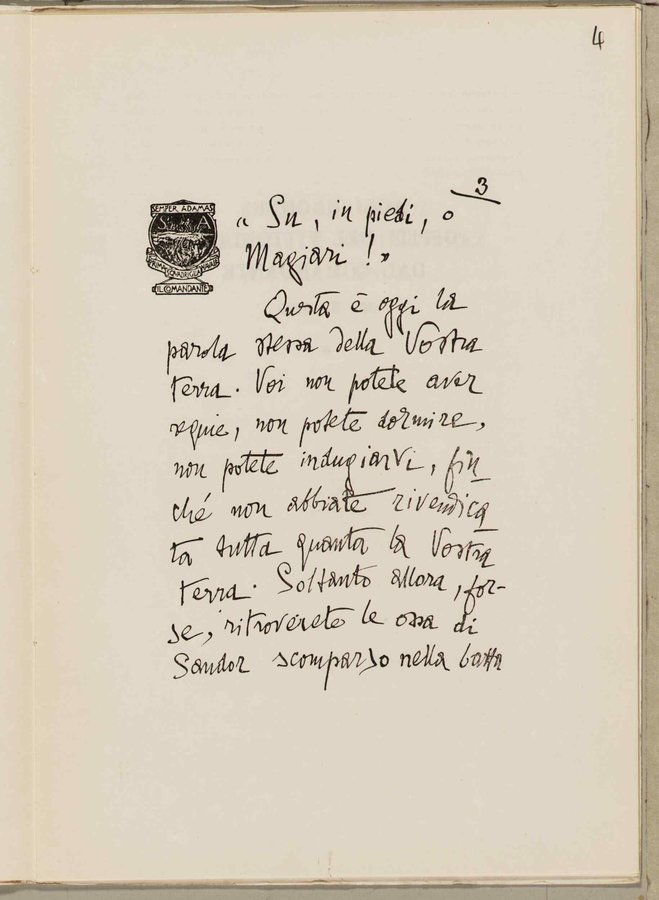 4
3
SEMPER ADAMAS
IL COMANDANTE
« Su, in piedi, o
Magiari! »
Questa è oggi la
parola stessa della Vostra
terra. Voi non potete aver
requie, non potete dormire,
non potete indugiarvi, fin
ché non abbiate rivendica
ta tutta quanta la Vostra
terra. Soltanto allora, for-
se, ritroverete le ossa di
Sandor scomparso nella batta